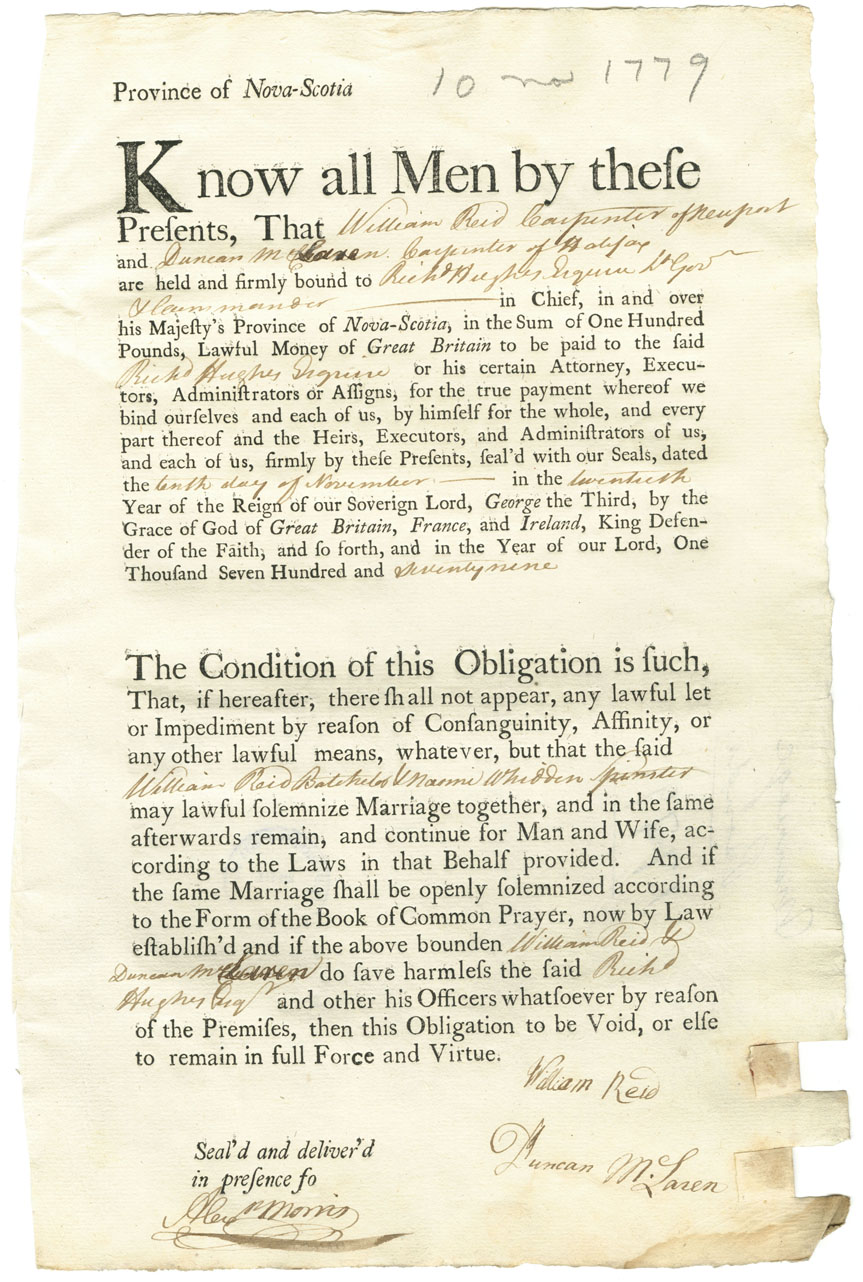 Province of Nova-Scotia 10 nov 1779
Know all Men by theſe
Preſents, That William Reid Carpenter of Newport
and Duncan McLaren. Carpenter of Halifax
are held and firmly bound to Richd Hughes Esquire Lt Govr
& Commander in Chief, in and over
his Majeſty's Province of Nova-Scotia, in the Sum of One Hundred
Pounds, Lawful Money of Great Britain to be paid to the ſaid
Richd Hughes Esquire or his certain Attorney, Execu-
tors, Adminiſtrators or Aſſigns, for the true payment whereof we
bind ourſelves and each of us, by himſelf for the whole, and every
part thereof and the Heirs, Executors, and Adminiſtrators of us,
and each of us, firmly by theſe Preſents, ſeal'd with our Seals, dated
the tenth day of November in the twentieth
Year of the Reign of our Soverign Lord, George the Third, by the
Grace of God of Great Britain, France, and Ireland, King Defen-
der of the Faith, and ſo forth, and in the Year of our Lord, One
Thouſand Seven Hundred and Seventy nine
The Condition of this Obligation is ſuch,
That, if hereafter, there ſhall not appear, any lawful let
or Impediment by reaſon of Conſanguinity, Affinity, or
any other lawful means, whatever, but that the ſaid
William Reid Batchelor & Naomi Whidden Spinster
may lawful ſolemnize Marriage together, and in the ſame
afterwards remain, and continue for Man and Wife, ac-
cording to the Laws in that Behalf provided. And if
the ſame Marriage ſhall be openly ſolemnized according
to the Form of the Book of Common Prayer, now by Law
eſtabliſh'd and if the above bounden William Reid &
Duncan McLaren do ſave harmleſs the ſaid Richd
Hughes Esqr and other his Officers whatſoever by reaſon
of the Premiſes, then this Obligation to be Void, or elſe
to remain in full Force and Virtue.
William Reid
Duncan McLaren
Seal'd and deliver'd
in preſence fo
Morris